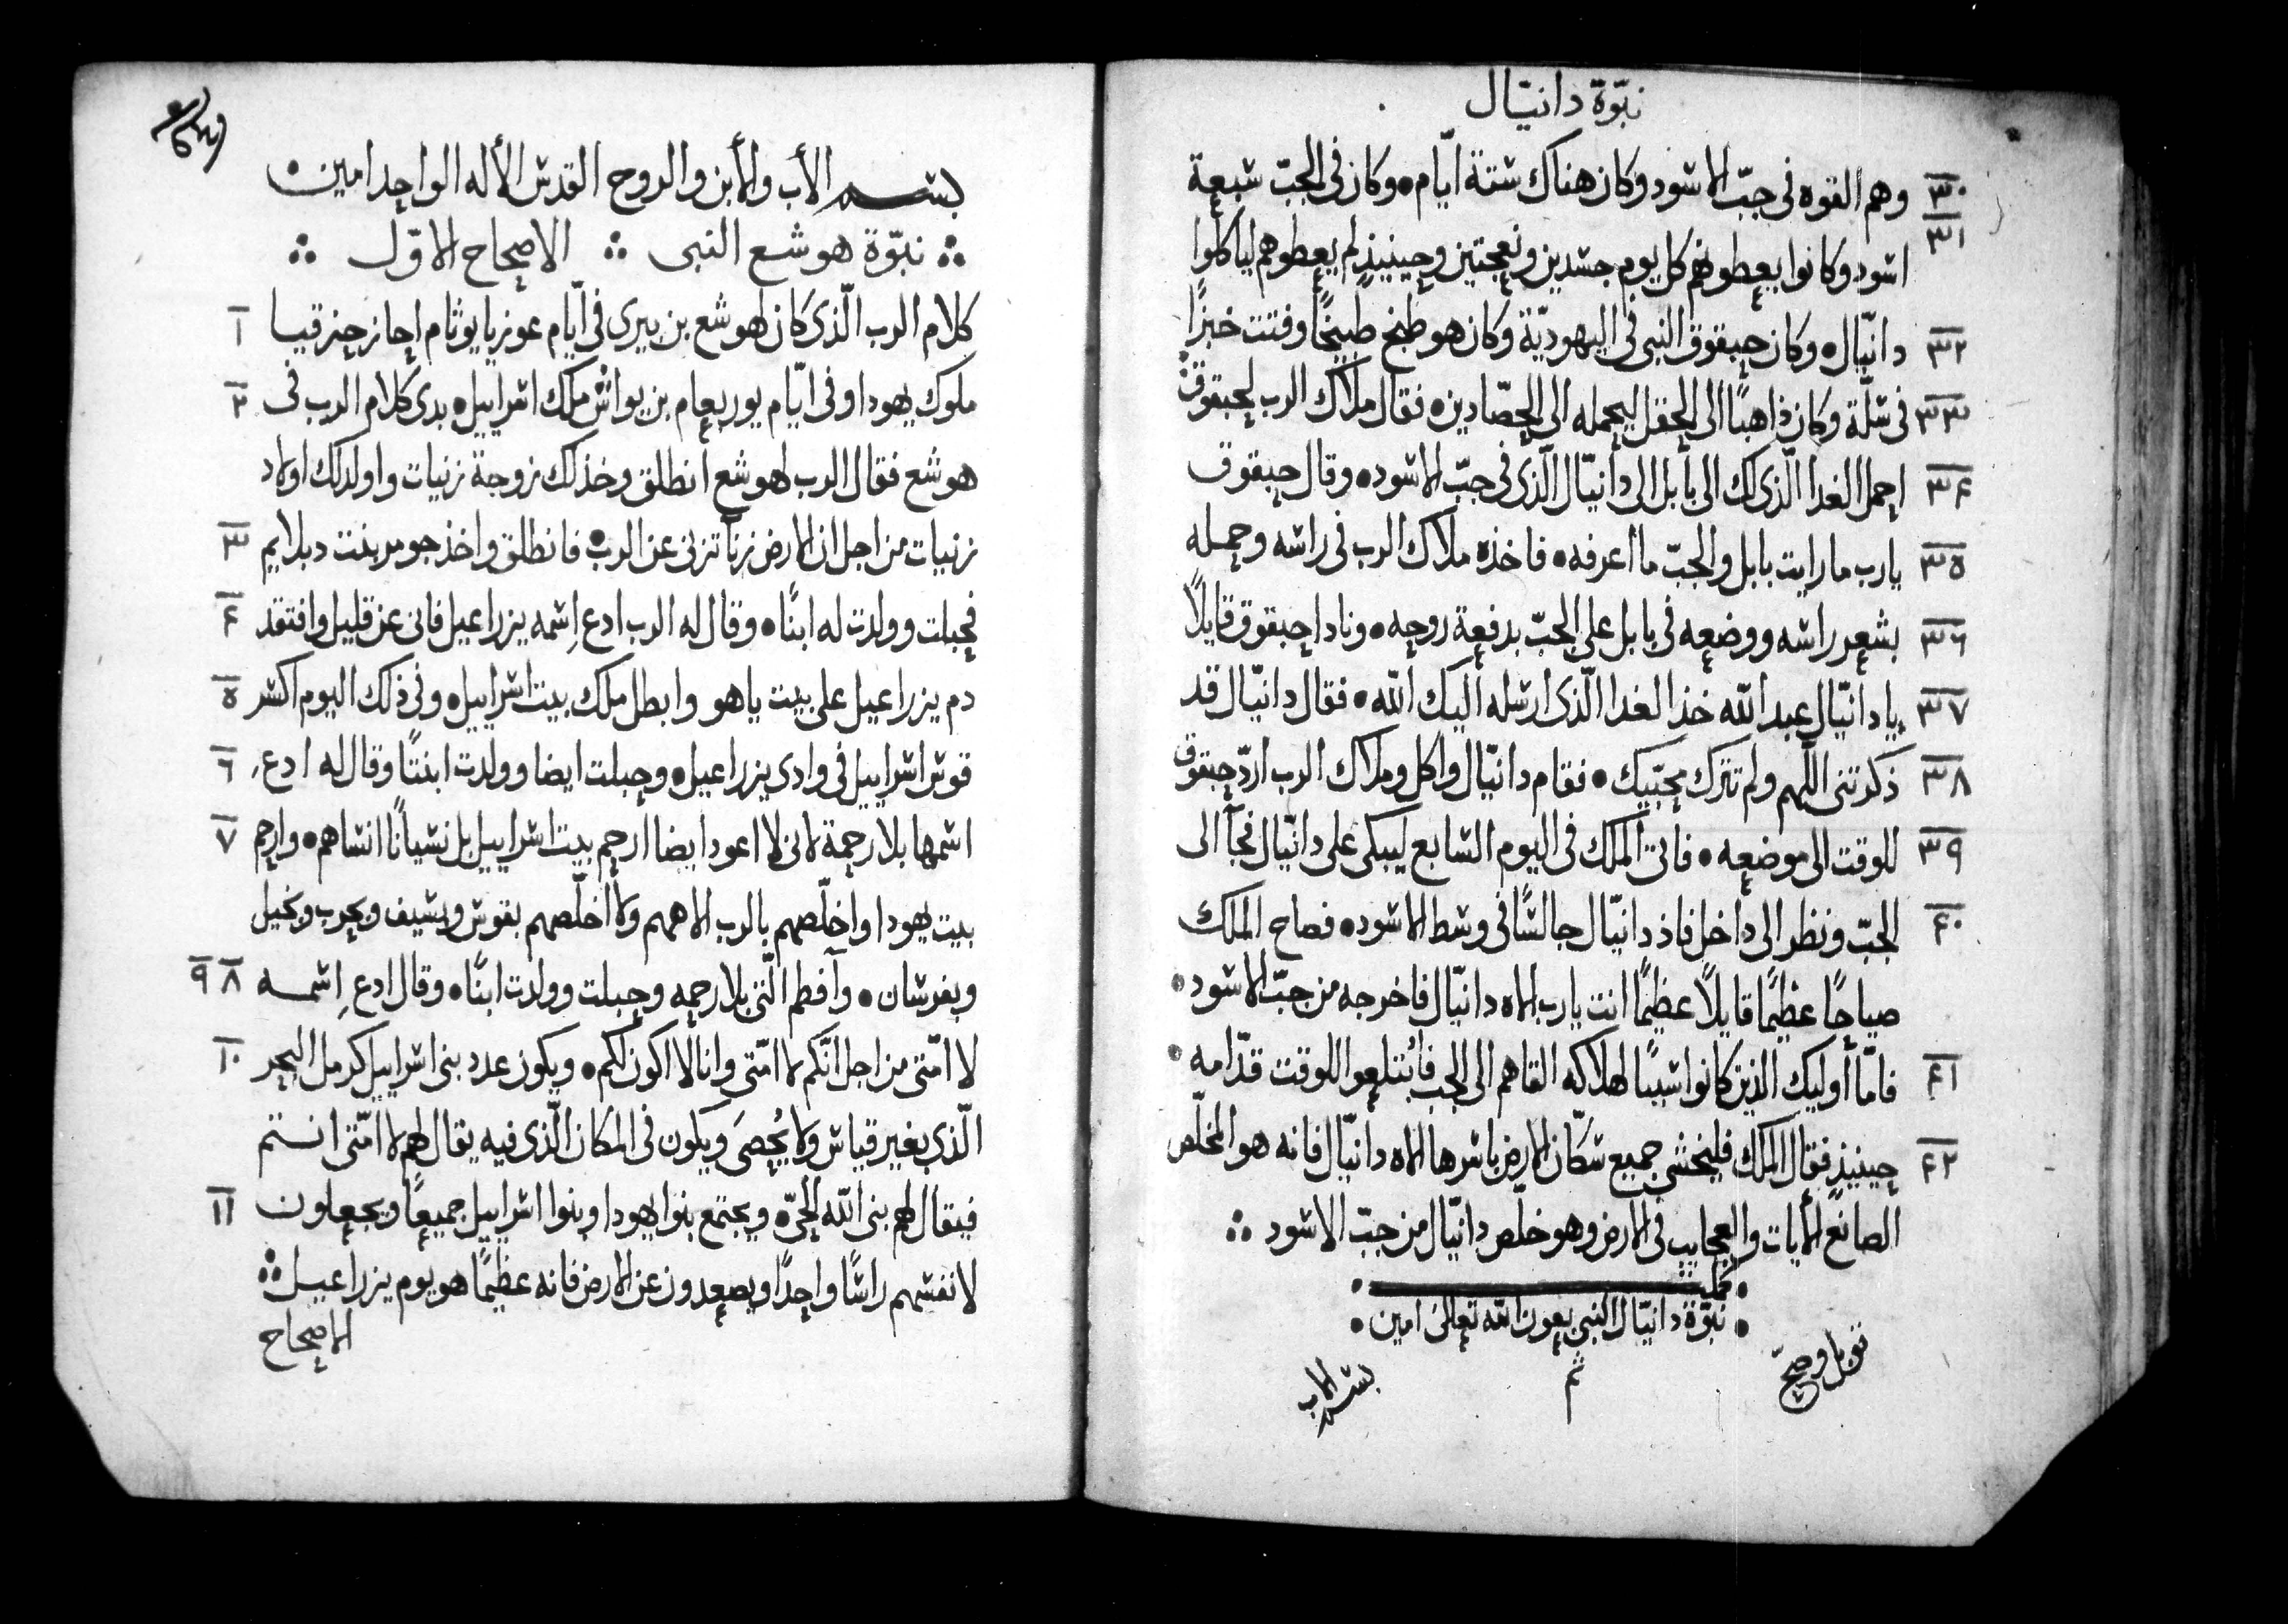 نبوّة دانيّال
٣٠ وهم القوه فى جبّ الاسود وكان هناك ستة ايّام • وكان فى الجبّ سبعة
٣١ اسود وكانوا يعطونهم كل يوم جسدين ونعجتين وحينيذٍ لم يعطوهم لياكلوا
٣٢ دانيّال • وكان حبقوق النبى فى اليهوديّة وكان هو طبخ طبيخًا وفتت خبزًا
٣٣ فى سلّة وكان ذاهبًا الى الحقل ليحمله الى الحصّادين • فقال ملاك الرب لحبقوق
٣٤ احمل الغدا الّذى لك الى بابل الى دانيّال الّذى فى جبّ الاسود • وقال حبقوق
٣٥ يارب ما رايت بابل والجبّ ما اعرفه • فاخذه ملاك الرب فى راسه وحمله
٣٦ بشعر راسه ووضعه فى بابل على الجبّ بدفعة روحه • ونادا حبقوق قايلاً
٣٧ يا دانيّال عبد الله خذ الغدا الّذى ارسله اليك الله • فقال دانيّال قد
٣٨ ذكرتنى اللهم ولم تترك محبّيك • فقام دانيّال واكل وملاك الرب اردّ حبقوق
٣٩ للوقت الى موضعه • فاتى الملك فى اليوم السابع ليبكى على دانيّال فجآ الى
٤٠ الجبّ ونظر الى داخل فاذ دانيّال جالسًا فى وسط الاسود • فصاح الملك
صياحًا عظيمًا قايلاً عظيمًا انت يارب الاه دانيّال فاخرجه من جبّ الاسود •
٤١ فامّا أوليك الذين كانوا سببًا لهلاكه القاهم الى الجب فأبتلعوا للوقت قدّامه •
٤٢ حينيذٍ فقال الملك فليخشى جميع سكّان الارض باسرها الاه دانيّال فانه هو المخلّص
الصانع الأيات والعجايب فى الارض وهو خلّص دانيّال من جبّ الاسود ∴
• كملت •
• نبوّة دانيّال النبى بعون الله تعالى امين •
قوبل وصحّ
تم
بسم الاب
بسم الأب والأبن والروح القدس الأله الواحد امين •
∴ نبوّة هوشع النبى ∴ الاصحاح الاوّل ∴
١ كلام الرب الّذى كان لهوشع بن بيرى فى ايّام عوزيا يوثام احاز حزقيا
٢ ملوك يهودا وفى ايّام يوربعام بن يواش ملك اسراييل • بدى كلام الرب فى
هوشع فقال الرب لهوشع أنطلق وخذ لك زوجة زنيات واولد لك اولاد
٣ زنيات من اجل ان الارض زنآ تزنى عن الرب • فانطلق واخذ جومر بنت دبلايم
٤ فحبلت وولدت له ابنًا • وقال له الرب ادع اِسمه يزراعيل فانى عن قليل وافتقد
٥ دم يزراعيل على بيت ياهو وابطل ملك بيت اسراييل • وفى ذلك اليوم اكسر
٦ قوس اسراييل فى وادى يزراعيل • وحبلت ايضا وولدت ابنتًا وقال له ادع
٧ اسمها بلا رحمة لانى لا اعود ايضا ارحم بيت اسراييل بل نسيانًا انساهم • وارحم
بيت يهودا واخلّصهم بالرب الاههم ولا اخلّصهم بقوس وبسيف وبحرب وبخيل
٨ ٩ وبفرسان • وآفطم الّتى بلا رحمه وحبلت وولدت ابنًا • وقال ادع اِسمه
١٠ لا امّتى من اجل انّكم لا امّتى وانا لا اكون لكم • ويكون عدد بنى اسراييل كرمل البحر
الّذى بغير قياس ولا يُحصَى ويكون فى المكان الّذى فيه يقال لهم لا امّتى انتم
١١ فيقال لهم بنى الله الحىّ • ويجتمع بنوا يهودا وبنوا اسراييل جميعًا ويجعلون
لانفسهم راسًا واحدًا ويصعدون عن الارض فانه عظيمًا هو يوم يزراعيل ∴
الاصحاح